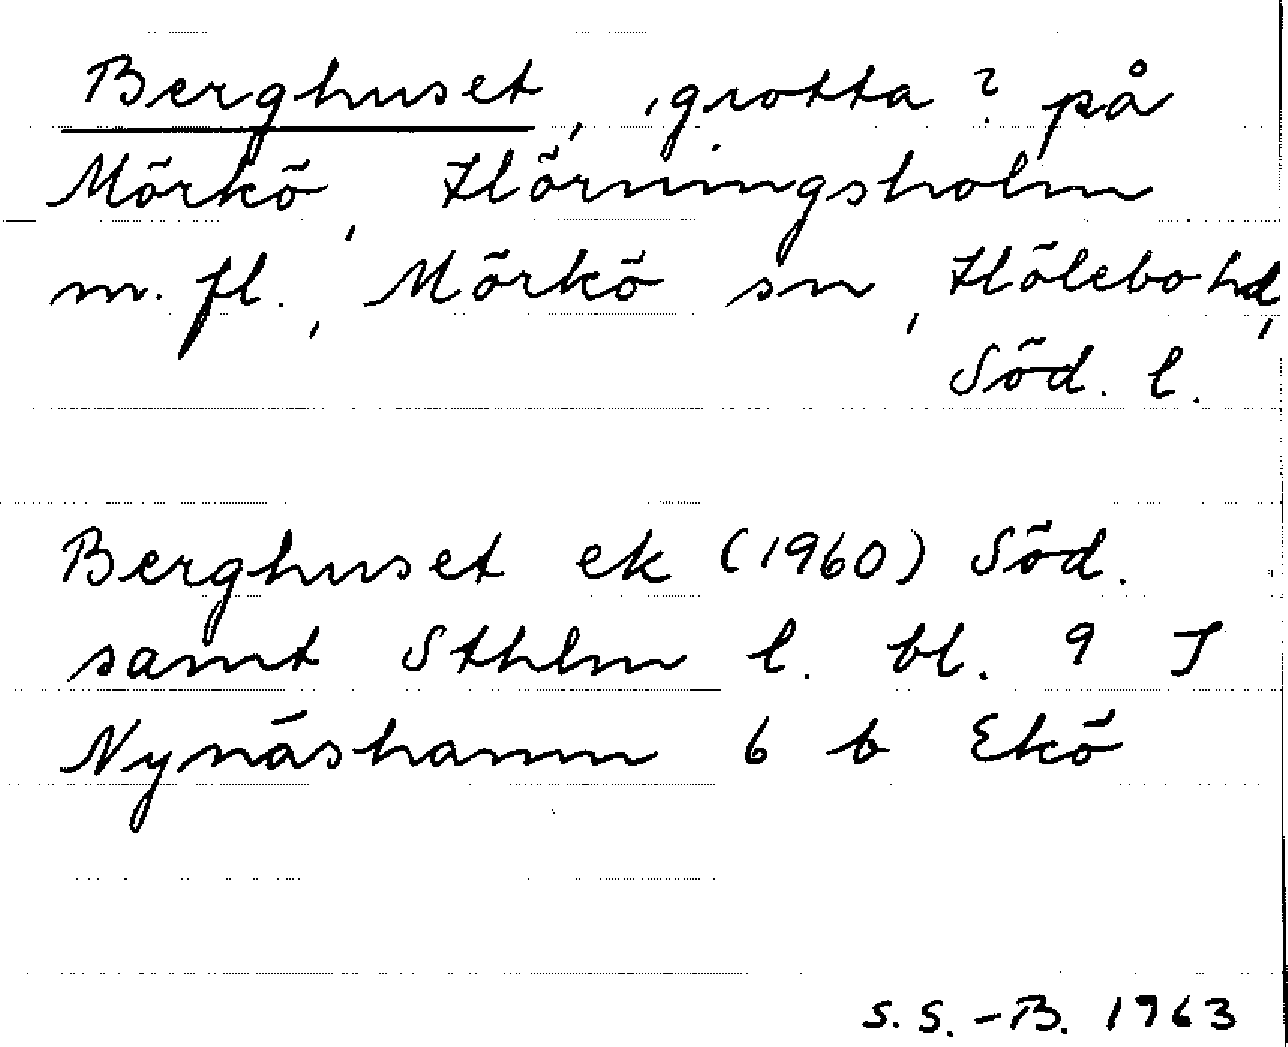 Berghuset, grotta? på
Mörkö, Hörningsholm
m. fl., Mörkö sn, Hölebo hd,
Söd. l.
Berghuset ek (1960) Söd.
samt Sthlm l. bl. 9 I
Nynäshamn 6 b Ekö
S.S.-B. 1963